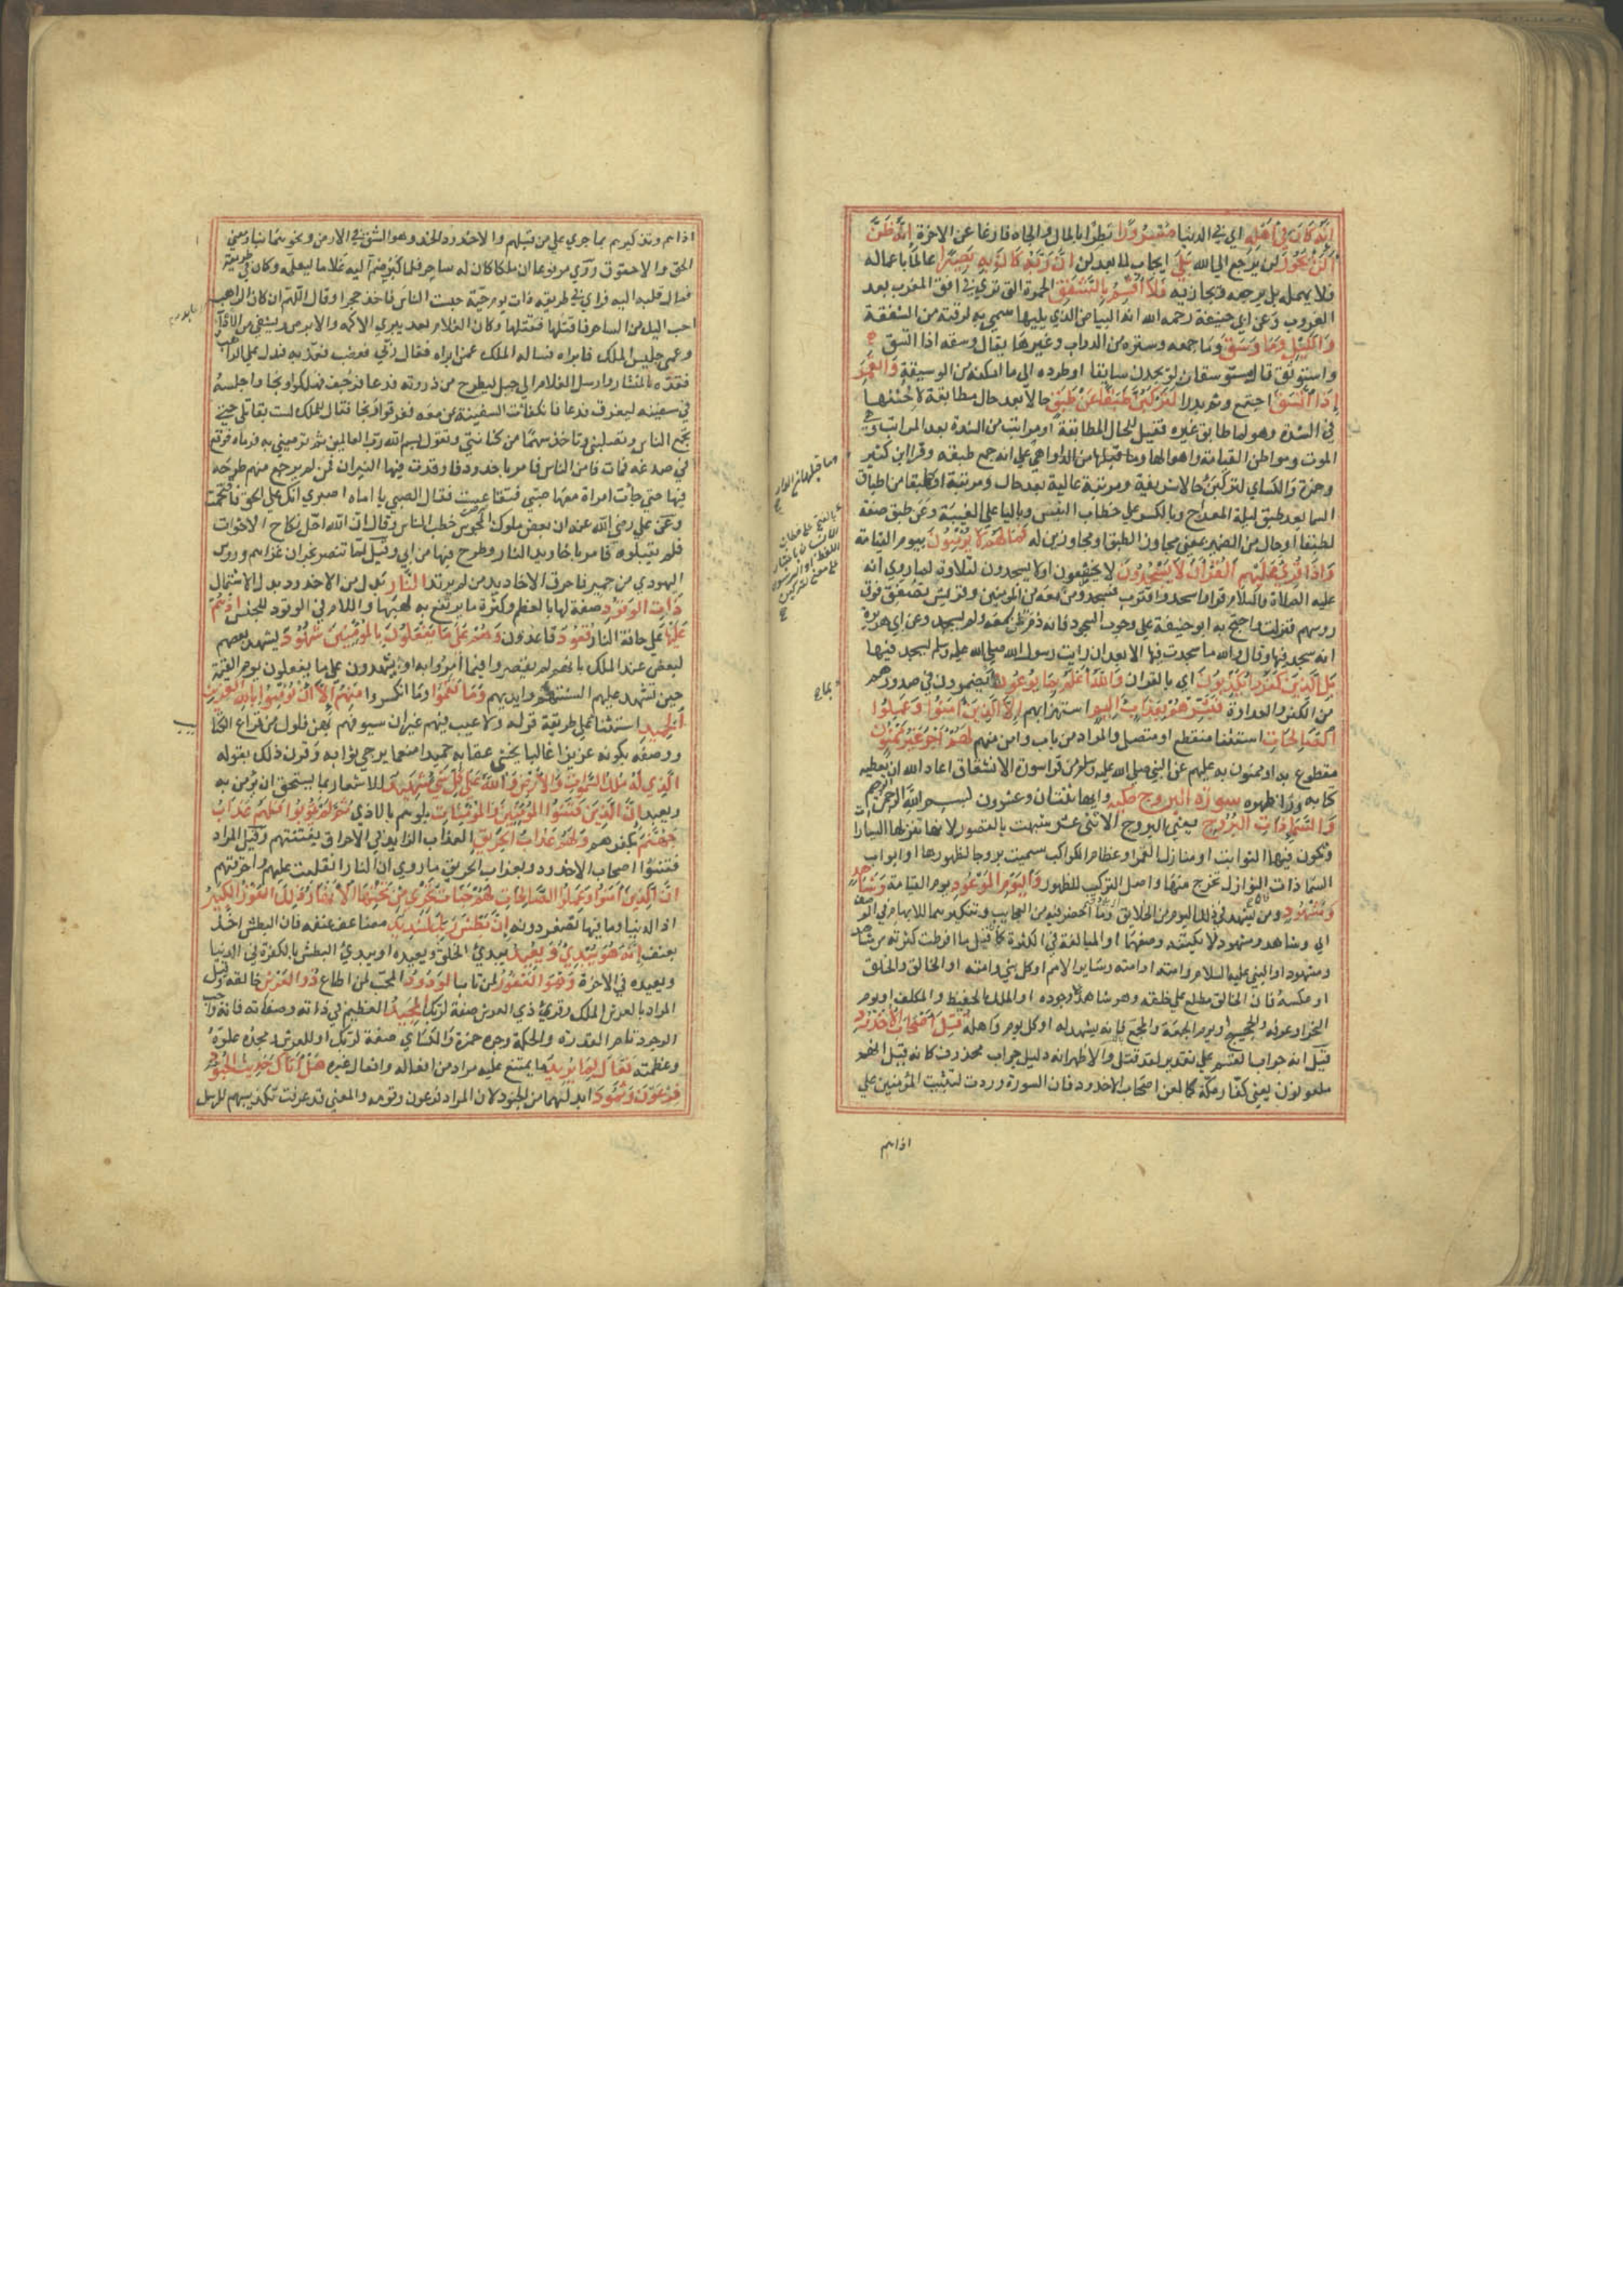 إنه كان في أهله اي في الدنيا مسرورا بطرا بالمال والجاه فارغا عن الاخرة إنه ظن
أن لن يحور لن يرجع الى الله بلى ايجاب لما بعد لن ان ربه كان به بصيرا عالما باعماله
فلا يهمله بل يرجعه ويجازيه فلا أقسم بالشفق الحمرة التي ترى في افق المغرب بعد
الغروب وعن ابي حنيفة رحمه الله انه البياض الذي يليها سمي به لرقته من الشفقة
والليل وما وسق وما جمعه وستره من الدواب وغيرها يقال وسقه فاتسق
واستوثق قال مستوسقات لو يجدن سايقا او طرده الى اماكنه من الوسيقة والقمر
إذا اتسق اجتمع وتم بدرا لتركبن طبقا عن طبق حالا بعد حال مطابقة لاختها
في الشدة وهو لما طابق غيره فقيل للحال المطابقة او مراتب من الشدة بعد المراتب وهي
الموت ومواطن القيامة واهوالها وما قبلها من الدواهي على انه جمع طبقه وقرا ابن كثير
وحمزة والكساي لتركبن حالا شريفة ومرتبة عالية بعد حال ومرتبة او طبقا من اطباق
السما بعد طبق ليلة المعراج وبالكسر على خطاب النفس وباليا على الغيبة وعن طبق صفة
لطبقا او حال من الضمير بمعنى مجاوزا لطبق او مجاوزين له فما لهم لا يؤمنون بيوم القيامة
وإذا قرئ عليهم القرآن لا يسجدون لا يخضعون او لا يسجدون لتلاوته لما روي انه
عليه الصلاة والسلام قرا واسجد واقترب فسجد ومن معه من المومنين وقريش تصفق فوق
روسهم فنزلت واحتج به ابو حنيفة على وجوب السجود فانه ذم لمن سمعه ولم يسجد وعن ابي هريرة
انه سجد فيها وقال والله ما سجدت فيها الا بعد ان رايت رسول الله صلى الله عليه وسلم يسجد فيها
بل الذين كفروا يكذبون اي بالقران والله أعلم بما يوعون بما يضمرون في صدورهم
من الكفر والعداوة فبشرهم بعذاب أليم استهزا بهم إلا الذين آمنوا وعملوا
الصالحات استثنا منقطع او متصل والمراد من تاب وامن منهم لهم أجر غير ممنون
مقطوع به او ممنون به عليهم عن النبي صلى الله عليه وسلم من قرا سورة الانشقاق اعاذه الله ان يعطيه
كتابه ورا ظهره سورة البروج مكية وايها ثنتان وعشرون بسم الله الرحمن الرحيم
والسماء ذات البروج يعني البروج الاثنى عشر شبهت بالقصور لانها تنزلها السيارات
وتكون فيها الثوابت او منازل القمر او عظام الكواكب سميت بروجا لظهورها او ابواب
السما ذات النوازل تخرج منها واصل التركيب للظهور واليوم الموعود يوم القيامة وشاهد
ومشهود ومن يشهد في ذلك اليوم من الخلايق وما احضر فيه من العجايب وتنكيرهما للابهام في الوصف
اي وشاهد ومشهود لا يكتنه وصفهما او المبالغة في الكثرة كانه قيل ما افرطت كثرته من شاهد
ومشهود او النبي عليه السلام وامته او امته وساير الامم او كل نبي وامته او الخالق والخلق
او عكسه فان الخالق مطلع على خلقه وهو شاهد على وجوده او الملك الحفيظ والمكلف او يوم
النحر او عرفه والحجيج او يوم الجمعة والمجمع فانه يشهد له او كل يوم واهله قتل أصحاب الأخدود
قيل انه جواب القسم على تقدير لقد قتل والاظهر انه دليل جواب محذوف كانه قيل انهم
ملعونون يعني كفار مكة كما لعن اصحاب الاخدود فان السورة وردت لتثبيت المؤمنين على
اذاهم
وما قبلها في الدار
اذاهم وتذكيرهم بما جرى على من قبلهم والاخدود الخد وهو الشق في الارض ونحوهما بناء ومعنى
الحق والاحقوق روي مرفوعا ان ملكا كان له ساحر فلما كبر ضم اليه غلاما ليعلمه وكان في طريقه
فمال قلبه اليه فراى في طريقه ذات يوم حية حبست الناس فاخذ حجرا وقال اللهم ان كان الراهب
احب اليك من الساحر فاقتلها فقتلها وكان الغلام بعد يبري الاكمه والابرص ويشفي من الادوا
وعمي جليس الملك فابراه فساله الملك عمن ابراه فقال ربي فغضب فعذبه فدل على الغلام فعذبه فدل على الراهب
فقده بالمنشار وارسل الغلام الى جبل ليطرح من ذروته فدعا فرجف فهلكوا ونجا واجلسه
في سفينه ليغرق فدعا فانكفات السفينة بمن معه فغرقوا ونجا فقال للملك لست بقاتلي حتى
تجمع الناس وتصلبني وتاخذ سهما من كنانتي وتقول بسم الله رب العالمين ثم ترميني به فرماه فوقع
في صدغه فمات فامن الناس فامر باخدود فاوقدت فيها النيران فمن لم يرجع منهم طرحه
فيها حتى جات امراة معها صبي فتقاعست فقال الصبي يا اماه اصبري انك على الحق فاقتحمت
وعن علي رضي الله عنه ان بعض ملوك المجوس خطب الناس وقال ان الله احل نكاح الاخوات
فلم يقبلوه فامر باخاديد النار وطرح فيها من ابى وقيل لما تنصر نجران غزاهم ذو نواس
اليهودي من حمير فاحرق في الاخاديد من لم يرتد النار بدل من الاخدود بدل الاشتمال
ذات الوقود صفة لها بالعظم وكثرة ما يرتفع به لهبها واللام في الوقود للجنس إذ هم
عليها على حافة النار قعود قاعدون وهم على ما يفعلون بالمؤمنين شهود يشهد بعضهم
لبعض عند الملك بانهم لم يقصروا فيما أمروا به او يشهدون على ما يفعلون يوم القيمة
حين تشهد عليهم السنتهم وايديهم وما نقموا وما انكروا منهم إلا أن يؤمنوا بالله العزيز
الحميد استثنا على طريقة قوله ولا عيب فيهم غير ان سيوفهم بهن فلول من قراع الكتائب
ووصفه بكونه عزيزا غالبا يخشى عقابه حميدا منعما يرجى ثوابه وقرن ذلك بقوله
الذي له ملك السموات والأرض والله على كل شيء شهيد للاشعار بما يستحق ان يؤمن به
ويعبد إن الذين فتنوا المؤمنين والمؤمنات بلوهم بالاذى ثم لم يتوبوا فلهم عذاب
جهنم بكفرهم ولهم عذاب الحريق العذاب الزايد في الاحراق بفتنتهم وقيل المراد
فتنوا اصحاب الاخدود وبعذاب الحريق ما روي ان النار انقلبت عليهم واحرقتهم
ان الذين آمنوا وعملوا الصالحات لهم جنات تجري من تحتها الأنهار ذلك الفوز الكبير
اذ الدنيا وما فيها تصغر دونه إن بطش ربك لشديد مضاعف عنفه فان البطش اخذ
بعنف إنه هو يبدئ ويعيد يبدئ الخلق ويعيده او يبدئ البطش بالكفرة في الدنيا
ويعيده في الاخرة وهو الغفور لمن تاب الودود المحب لمن اطاع ذو العرش خالقه وقيل
المراد بالعرش الملك وقرئ ذي العرش صفة لربك المجيد العظيم في ذاته وصفاته فانه واجب
الوجود تام القدرة والحكمة وجره حمزة والكساي صفة لربك او للعرش ومجده علوه
وعظمته فعال لما يريد لا يمتنع عليه مراد من افعاله وافعال غيره هل أتاك حديث الجنود
فرعون وثمود ابدلهما من الجنود لان المراد فرعون وقومه والمعنى قد عرفت تكذيبهم للرسل